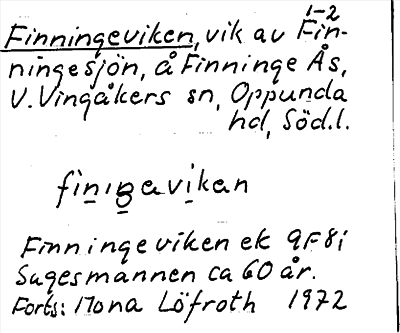 1-2
Finningeviken, vik av Fin-
ningesjön, å Finninge Ås,
V. Vingåkers sn, Oppunda
hd, Söd.l.
finiŋavikan
Finningeviken ek 9F8i
Sagesmannen ca 60 år.
Forts: Mona Löfroth 1972